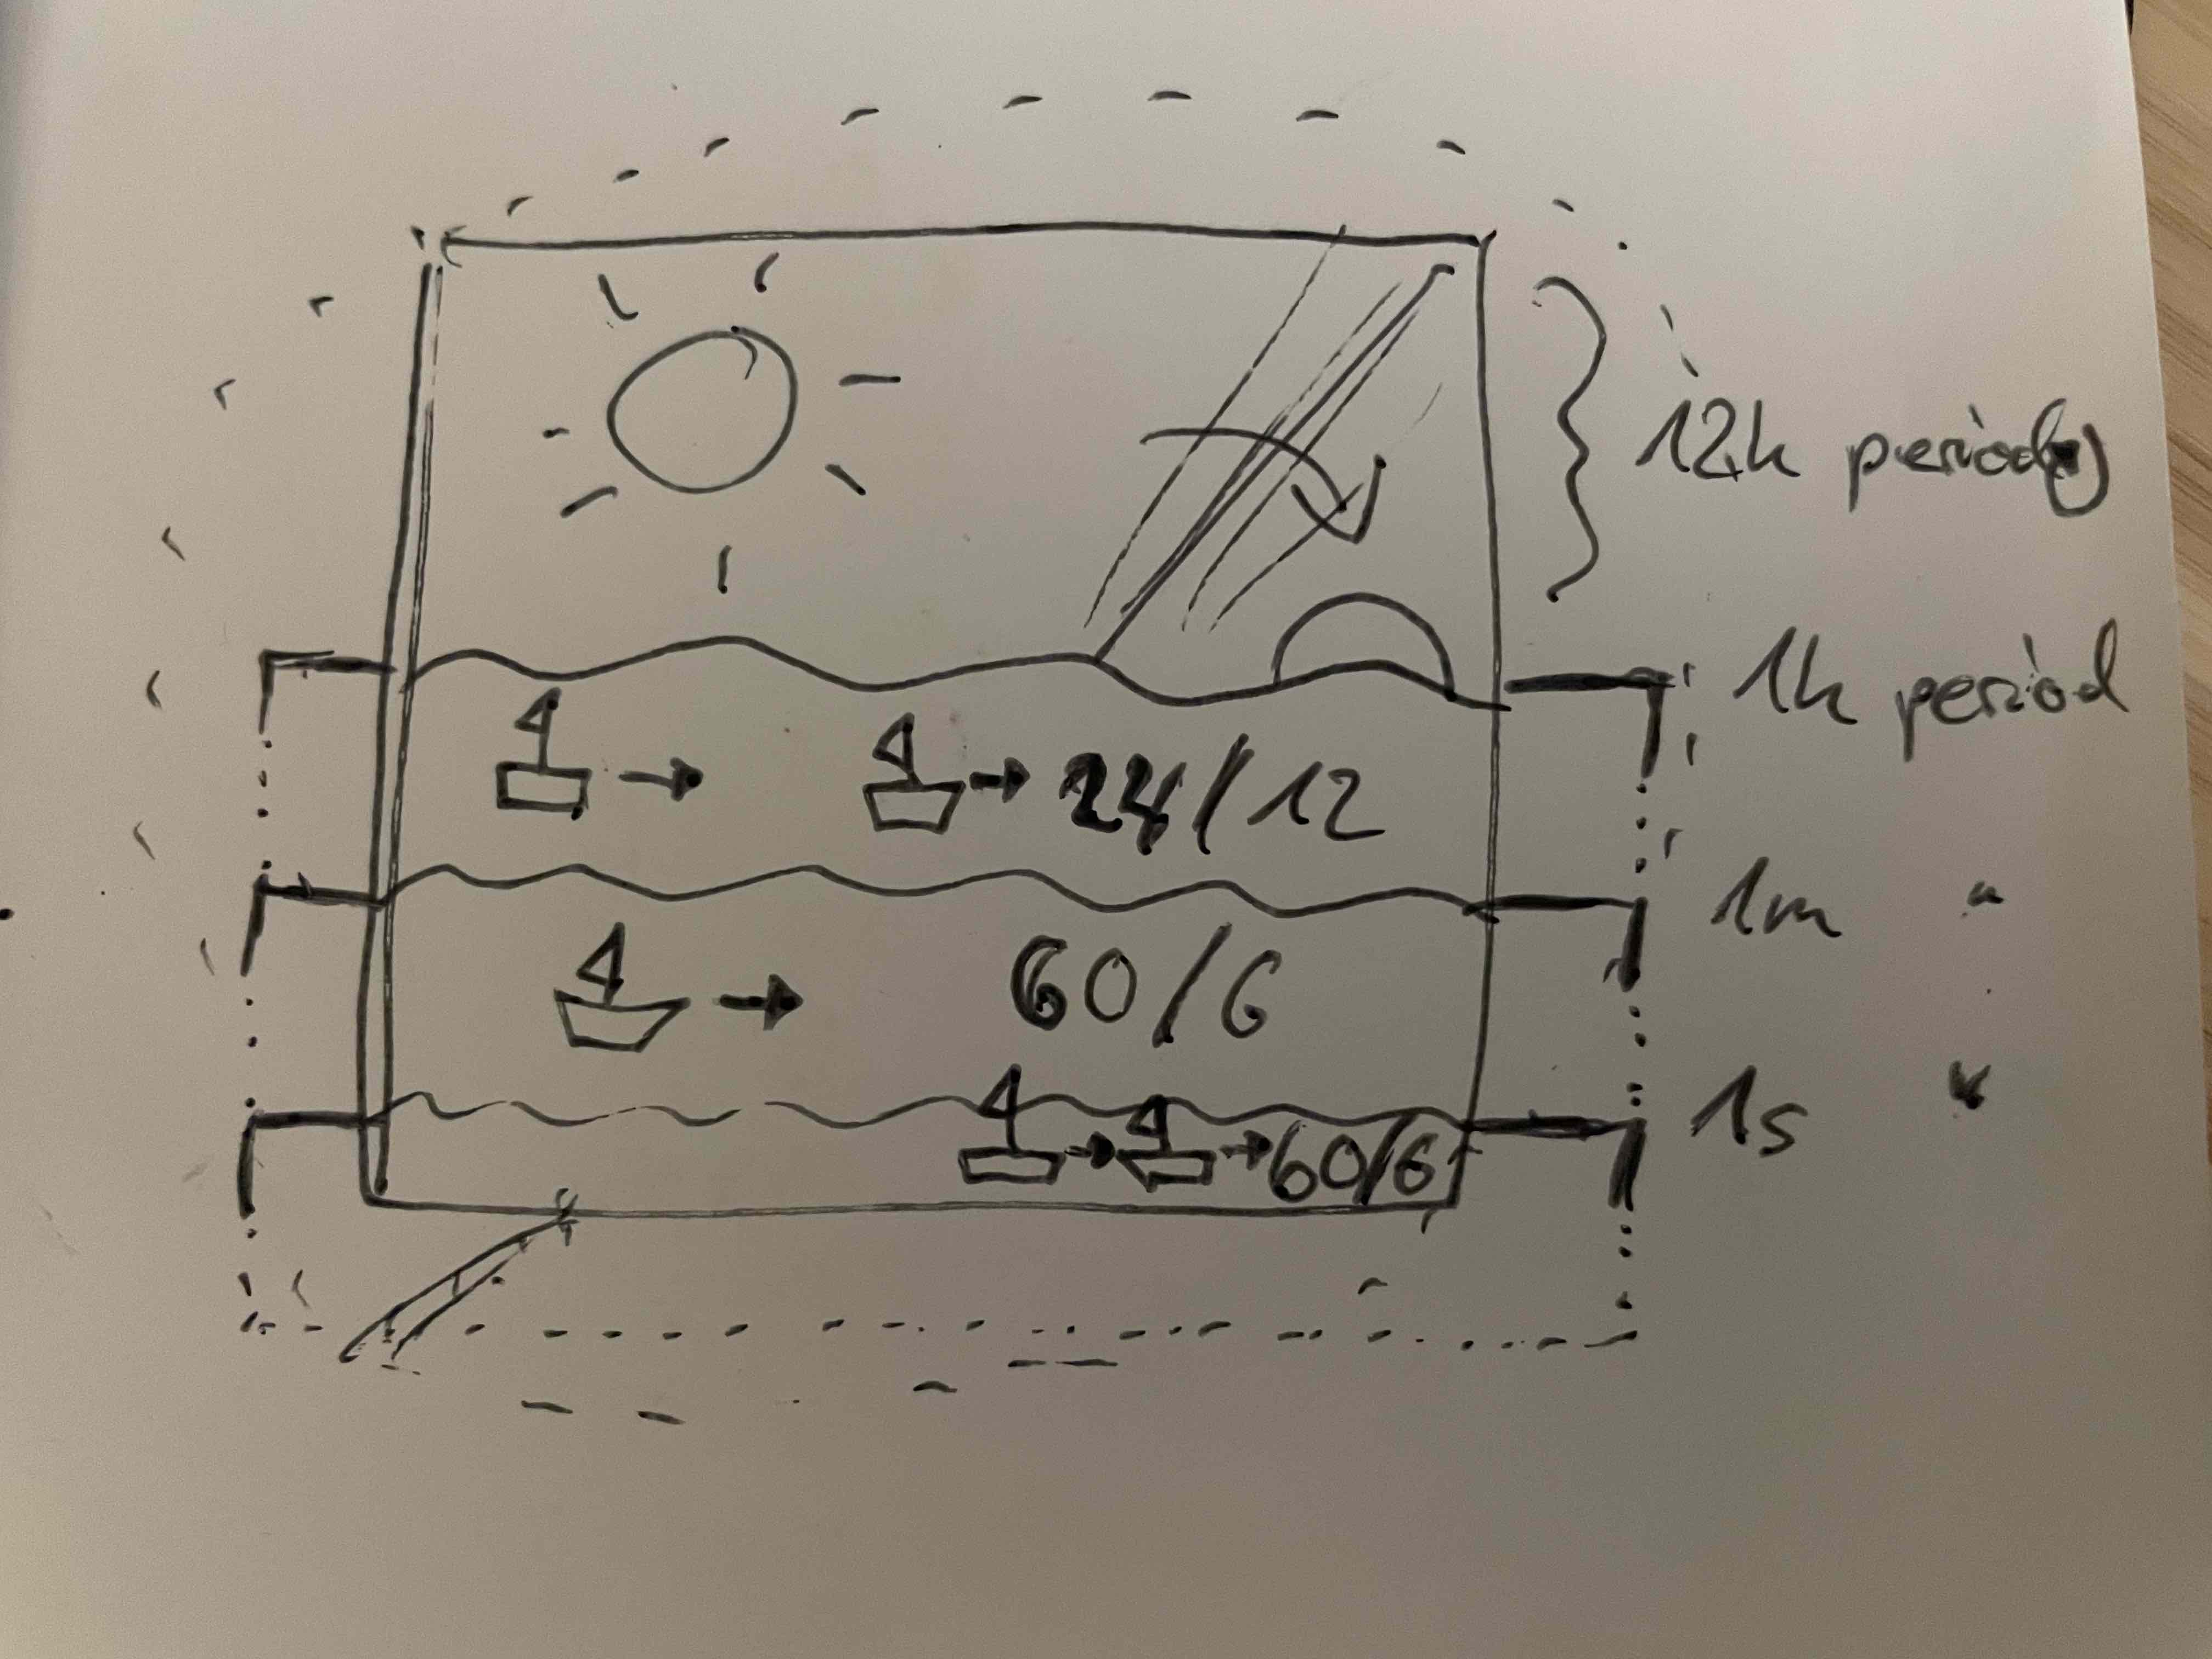 12h period
1h period
24/12
1m "
60/6
1s "
60/6